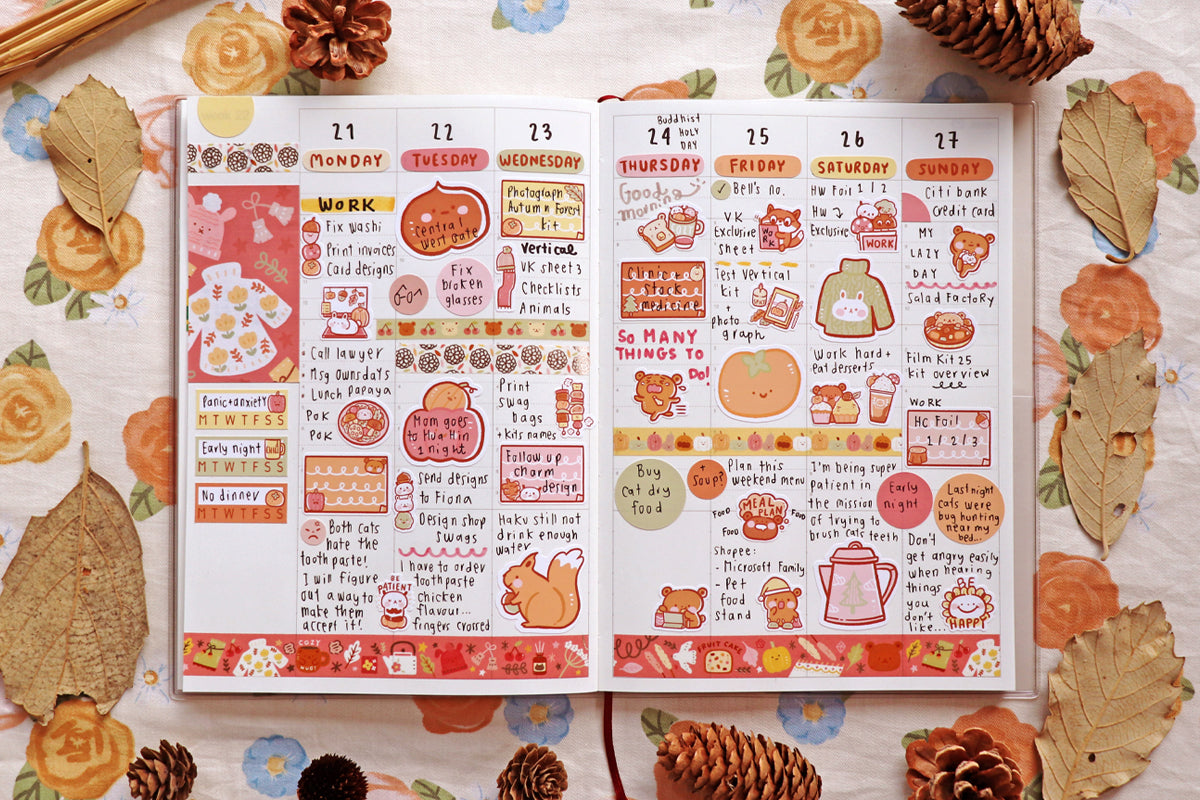 week 22
Panic+anxiety
M T W T F S S
Early night
M T W T F S S
No dinner
M T W T F S S
COZY
21
MONDAY
WORK
Fix washi
Print invoices
Card designs
• Call lawyer
• Msg Ownsdays
• Lunch Papaya
POK
POK
Both cats
hate the
toothpaste!
I will figure
out a way to
make them
accept it!
BE
PATIENT
22
TUESDAY
Central
West Gate
Fix
broken
glasses
Mom goes
to Hua Hin
1 night
Send designs
to Fiona
Design shop
swags
I have to order
toothpaste
chicken
flavour...
fingers crossed
23
WEDNESDAY
Photograph
Autumn Forest
kit
Vertical
VK sheet 3
Checklists
Animals
Print
swag
bags
+ kits names
Follow up
charm
design
Haku still not
drink enough
water
24
Buddhist
HOLY
DAY
THURSDAY
Good
morning
Clinic +
Stock
medicine
SO MANY
THINGS TO
DO!
Buy
cat dry
food
25
FRIDAY
Bell's no.
VK
Exclusive
sheet
WORK
Test Vertical
kit
+
photo
graph
+
Soup?
Plan this
weekend menu
MEAL
PLAN
FOOD
FOOD
FOOD
Shopee:
- Microsoft Family
- Pet
food
stand
FRUIT CAKE
26
SATURDAY
HW Foil 1 / 2
HW
Exclusive
WORK
Work hard +
eat desserts
I'm being super
patient in
the mission
of trying to
brush cats teeth
27
SUNDAY
Citi bank
credit card
MY
LAZY
DAY
Salad Factory
Film Kit 25
kit overview
WORK
HC Foil
1 / 2 / 3
Early
night
Last night
cats were
bug hunting
near my
bed...
Don't
get angry easily
when hearing
things
you
don't
like...
BE
HAPPY